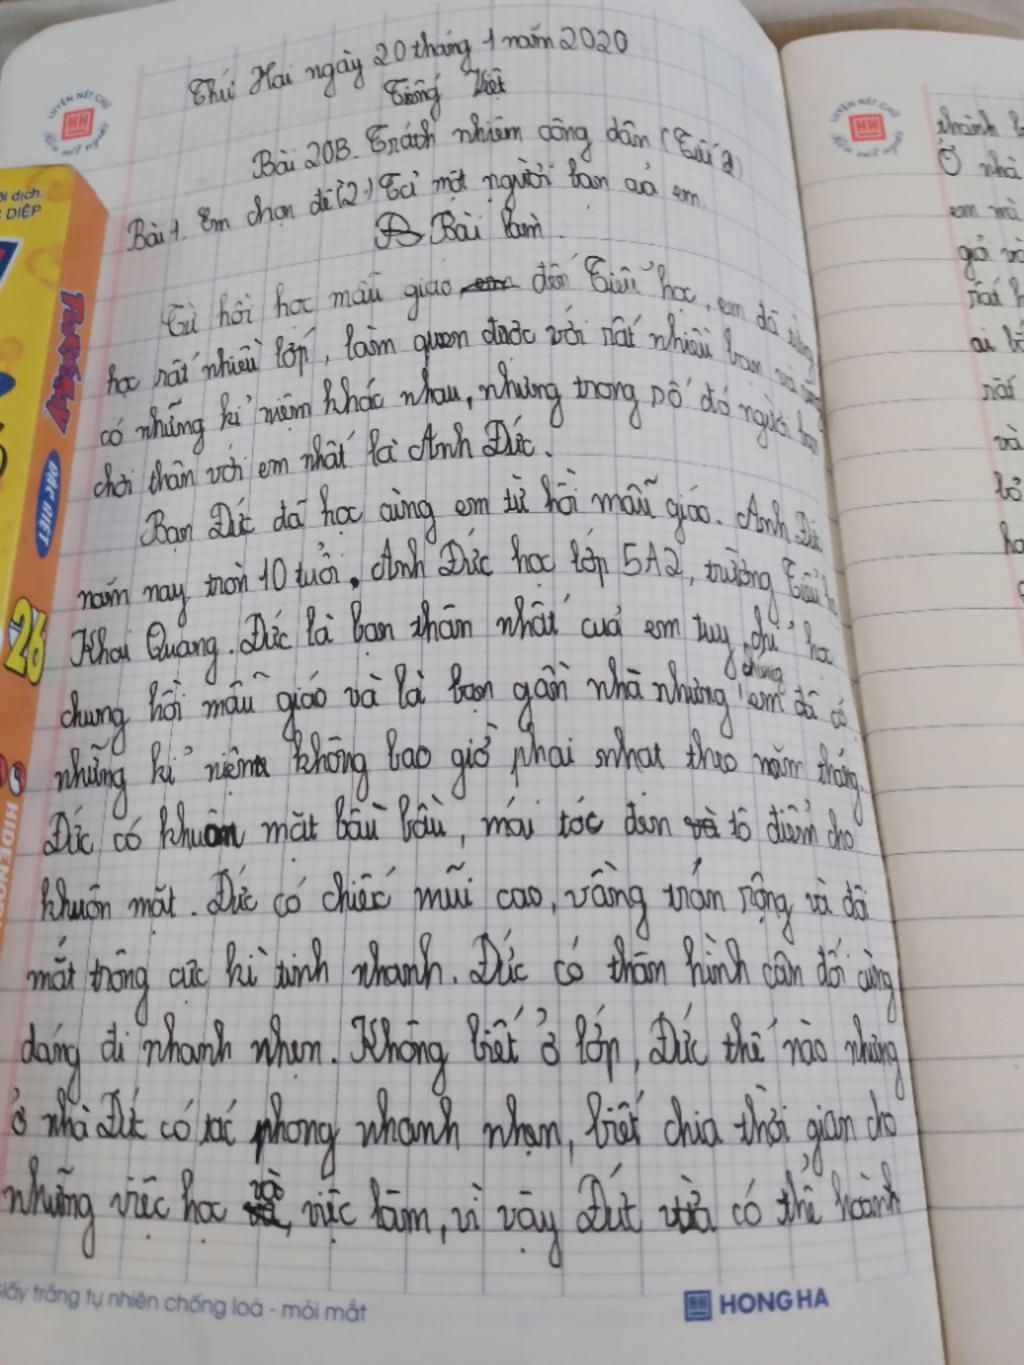 Thứ Hai ngày 20 tháng 1 năm 2020
Tiếng Việt
Bài 20B. Trách nhiệm công dân (Tiết 2)
Bài 1. Em chọn đề (2.) Tả một người bạn của em.
Bài làm.
Từ hồi học mẫu giáo đến Tiểu học, em đã từng
học rất nhiều lớp, làm quen được với rất nhiều bạn và cũng
có những kỉ niệm khác nhau, nhưng trong số đó người bạn
chơi thân với em nhất là Anh Đức.
Bạn Đức đã học cùng em từ hồi mẫu giáo. Anh Đức
năm nay tròn 10 tuổi. Anh Đức học lớp 5A2, trường Tiểu học
Khai Quang. Đức là bạn thân nhất của em tuy chỉ học
chung hồi mẫu giáo và là bạn gần nhà nhưng chúng em đã có
những kỉ niệm không bao giờ phai nhạt theo năm tháng.
Đức có khuôn mặt bầu bầu, mái tóc đen tô điểm cho
khuôn mặt. Đức có chiếc mũi cao, vầng trán rộng và đôi
mắt trông cực kì tinh nhanh. Đức có thân hình cân đối cùng
dáng đi nhanh nhẹn. Không biết ở lớp, Đức thế nào nhưng
ở nhà Đức có tác phong nhanh nhẹn, biết chia thời gian cho
những việc học và việc làm, vì vậy Đức vừa có thể hoành
Giấy trắng tự nhiên chống loá - mỏi mắt
HH HONG HA
LUYỆN NÉT CHỮ
HH
RÈN NẾT NGƯỜI
LUYỆN NÉT CHỮ
HH
RÈN NẾT NGƯỜI
DIỆP
ĐẶC BIỆT
26
Ở nhà
em mà
và